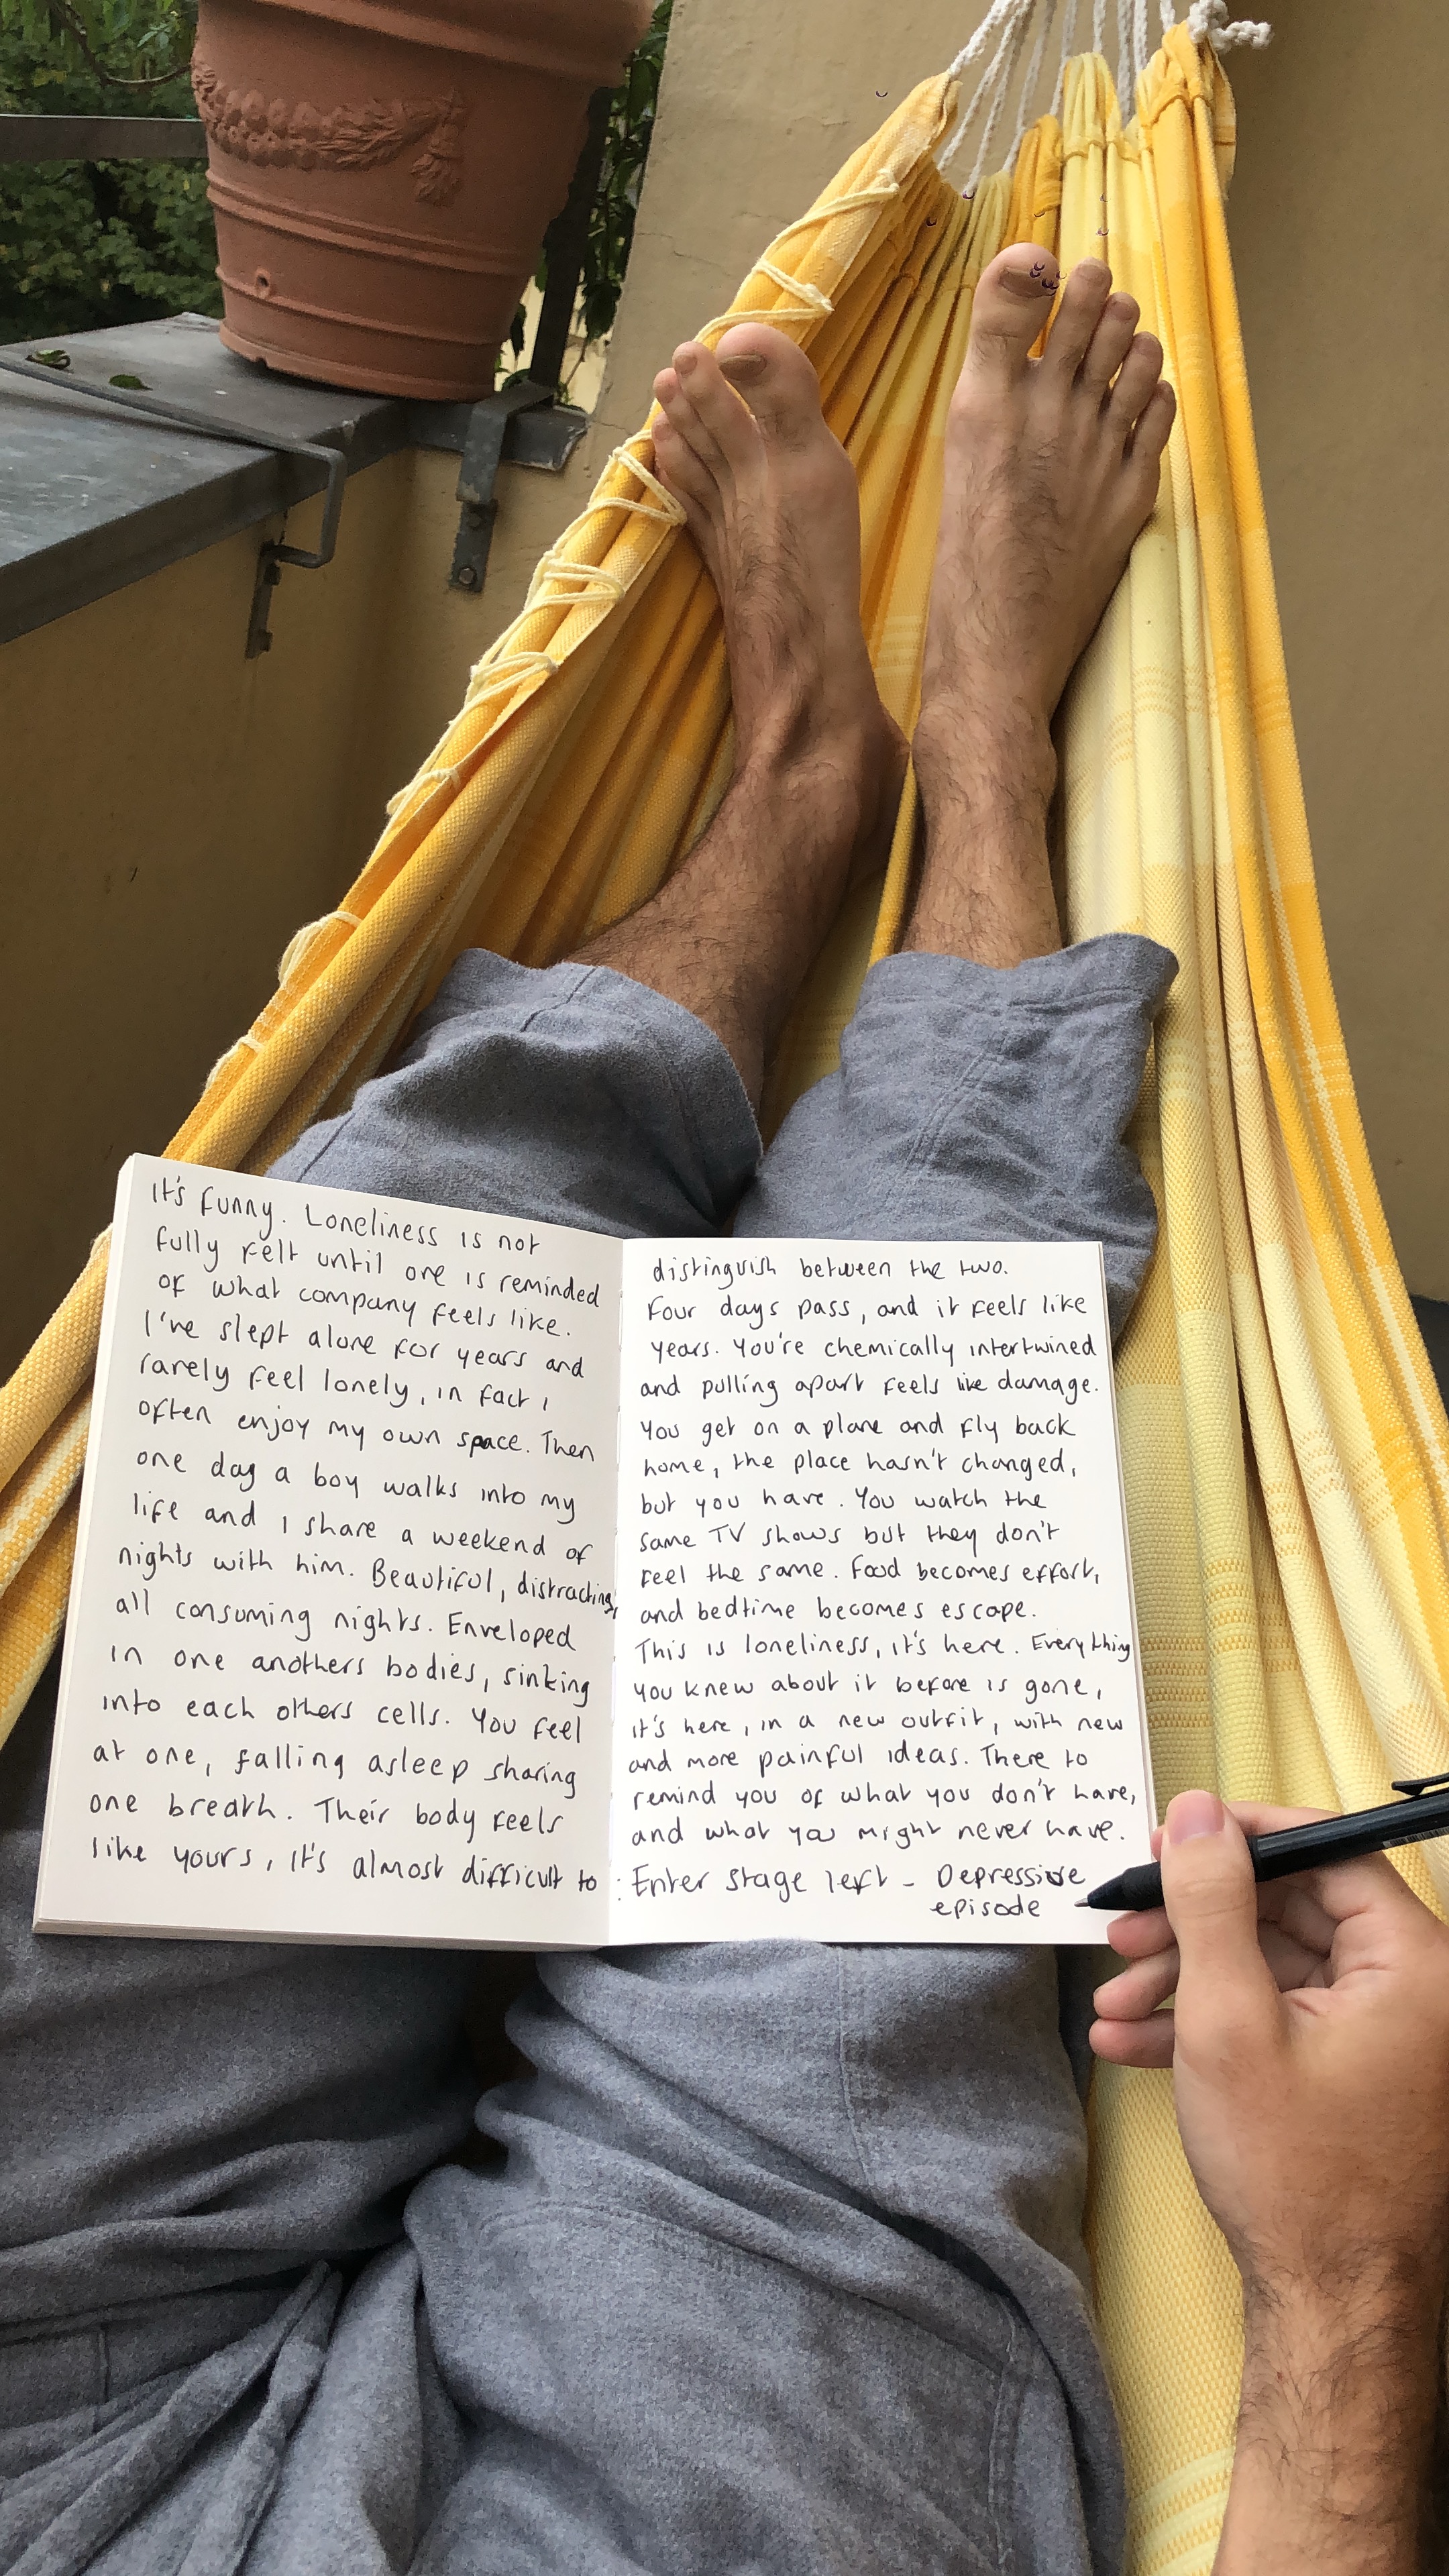 It's funny. Loneliness is not
fully felt until one is reminded
of what company feels like.
I've slept alone for years and
rarely feel lonely, in fact i
often enjoy my own space. Then
one day a boy walks into my
life and i share a weekend of
nights with him. Beautiful, distracting,
all consuming nights. Enveloped
in one anothers bodies, sinking
into each others cells. You feel
at one, falling asleep sharing
one breath. Their body feels
like yours, it's almost difficult to
distinguish between the two.
Four days pass, and it feels like
years. You're chemically intertwined
and pulling apart feels like damage.
You get on a plane and fly back
home, the place hasn't changed,
but you have. You watch the
same TV shows but they don't
feel the same. Food becomes effort,
and bedtime becomes escape.
This is loneliness, it's here. Everything
you knew about it before is gone,
it's here, in a new outfit, with new
and more painful ideas. There to
remind you of what you don't have,
and what you might never have.
: Enter stage left - Depressive
episode